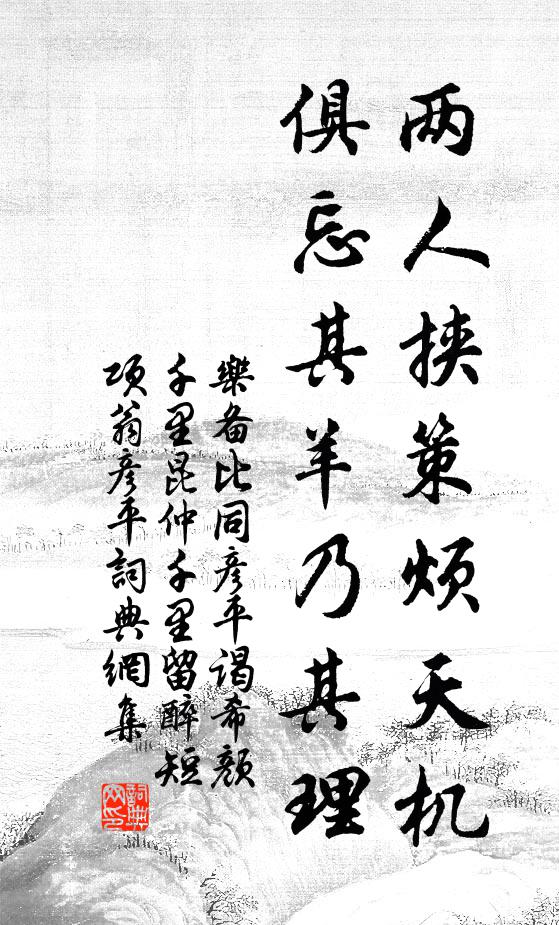 两人挟策烦天机
俱忘其羊乃其理
樂备比同彦平谒希颜
千里昆仲千里留醉短
项翁彦平詞典網集